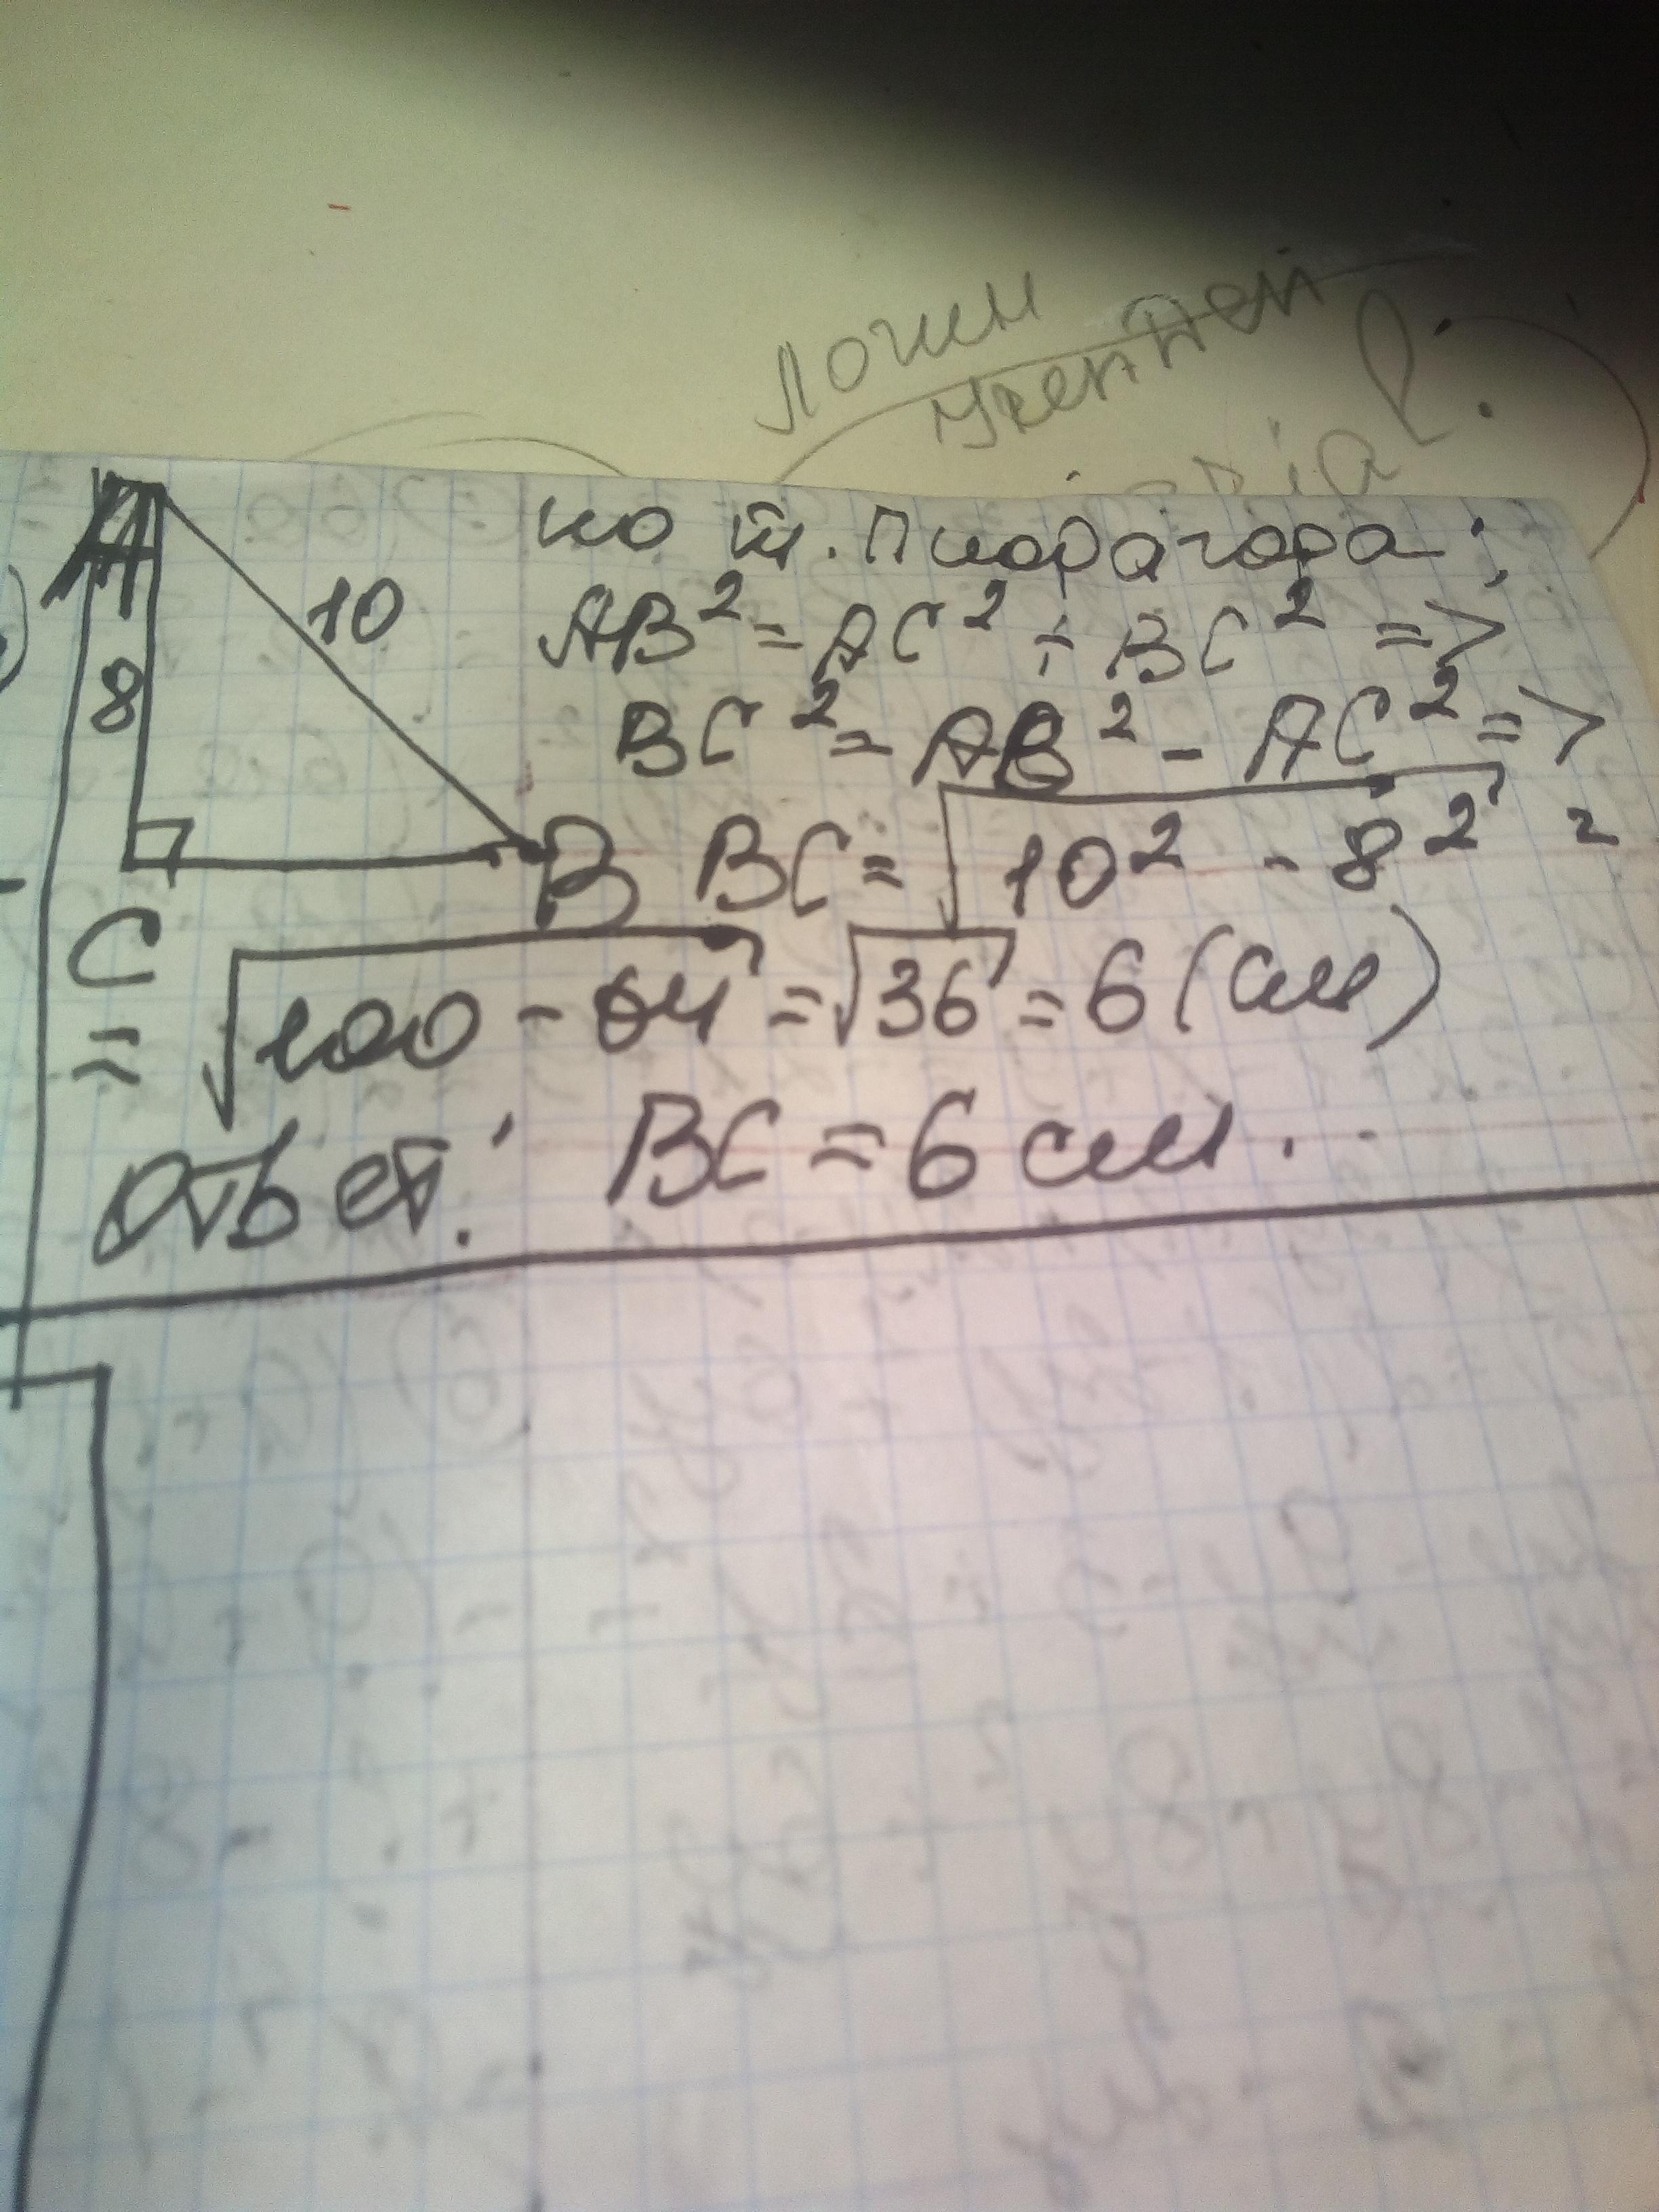 A
10
8
B
C
по т. Пифагора:
AB² = AC² + BC² =>
BC² = AB² - AC² =>
BC = √10² - 8² =
= √100 - 64 = √36 = 6 (см)
Ответ: BC = 6 см.